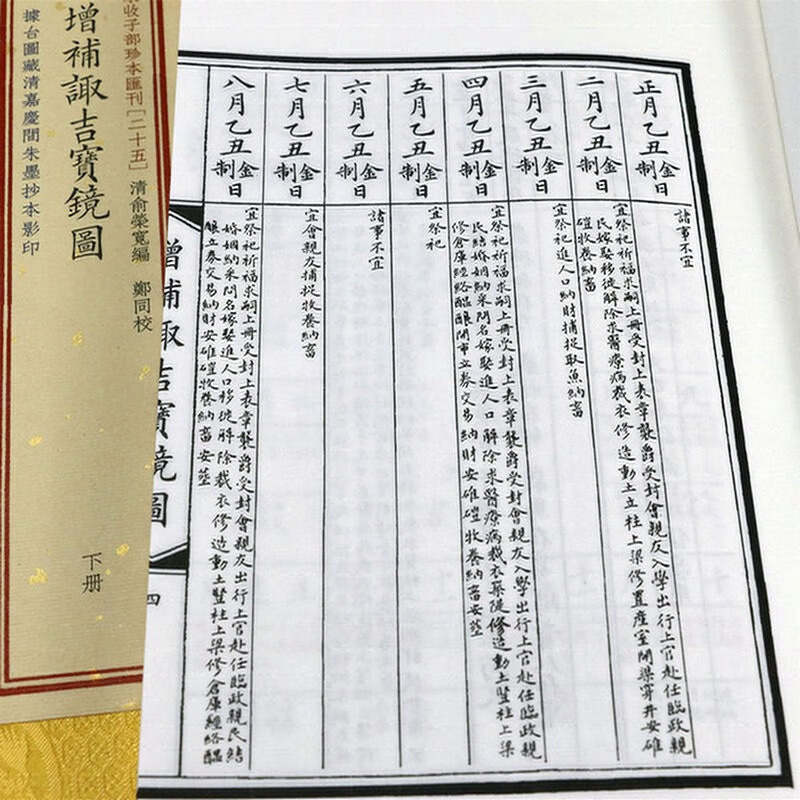 子部珍本匯刊[二十五]
增補諏吉寶鏡圖
清俞榮寬編 鄭同校
據台圖藏清嘉慶間朱墨抄本影印
下册
正月乙丑金制日
諸事不宜
二月乙丑金制日
宜祭祀祈福求嗣上冊受封上表章襲爵受封會親友入學出行上官赴任臨政親
民嫁娶移徙解除求醫療病裁衣修造動土立柱上梁修置產室開渠穿井安碓
磑牧養納畜
三月乙丑金制日
宜祭祀進人口納財捕捉取魚納畜
四月乙丑金制日
宜祭祀祈福求嗣上冊受封上表章襲爵受封會親友入學出行上官赴任臨政親
民結婚姻納采問名嫁娶進人口解除求醫療病裁衣築隄修造動土豎柱上梁
修倉庫經絡醞釀開市立券交易納財安碓磑牧養納畜安葬
五月乙丑金制日
宜祭祀
六月乙丑金制日
諸事不宜
七月乙丑金制日
宜會親友捕捉牧養納畜
八月乙丑金制日
宜祭祀祈福求嗣上冊受封上表章襲爵受封會親友出行上官赴任臨政親民結
婚姻納采問名嫁娶進人口移徙解除裁衣修造動土豎柱上梁修倉庫經絡醞
釀立券交易納財安碓磑牧養納畜安葬
增補諏吉寶鏡圖
四